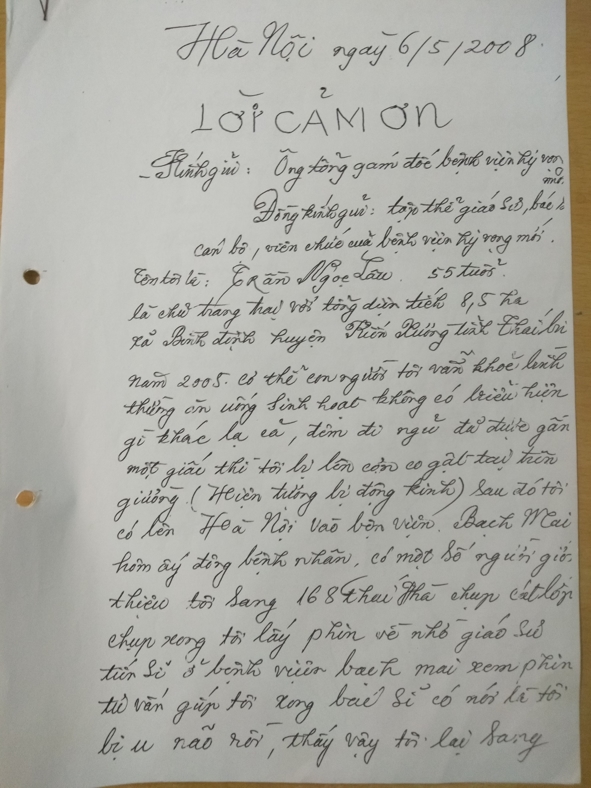 Hà Nội ngày 6/5/2008.
LỜI CẢM ƠN
- Kính gửi: Ông tổng gám đốc bệnh viện hy vọng
mới.
Đồng kính gửi: tập thể giáo sư, bác s
cán bộ, viên chức của bệnh viện hy vọng mới.
Tên tôi là: Trần Ngọc 55 tuổi.
là chủ trang trại với tổng diện tích 8,5 ha
xã Bình định huyện Kiến Xương tỉnh Thái bì
năm 2005. cơ thể con người tôi vẫn khoẻ bình
thường ăn uống sinh hoạt không có biểu hiện
gì khác lạ cả, đêm đi ngủ đã được gần
một giấc thì tôi bị lên cơn co gật tại trên
giường (Hiện tượng bị động kinh) sau đó tôi
có lên Hà Nội vào bện viện Bạch Mai
hôm ấy đông bệnh nhân, có một số người giớ
thiệu tôi sang 168 chụp cắt lớp
chụp xong tôi lấy phim về nhờ giáo sư
tiến sĩ ở bệnh viện bach mai xem phim
tư vấn giúp tôi xong bác sĩ có nói là tôi
bị u não rồi, thấy vậy tôi lại sang